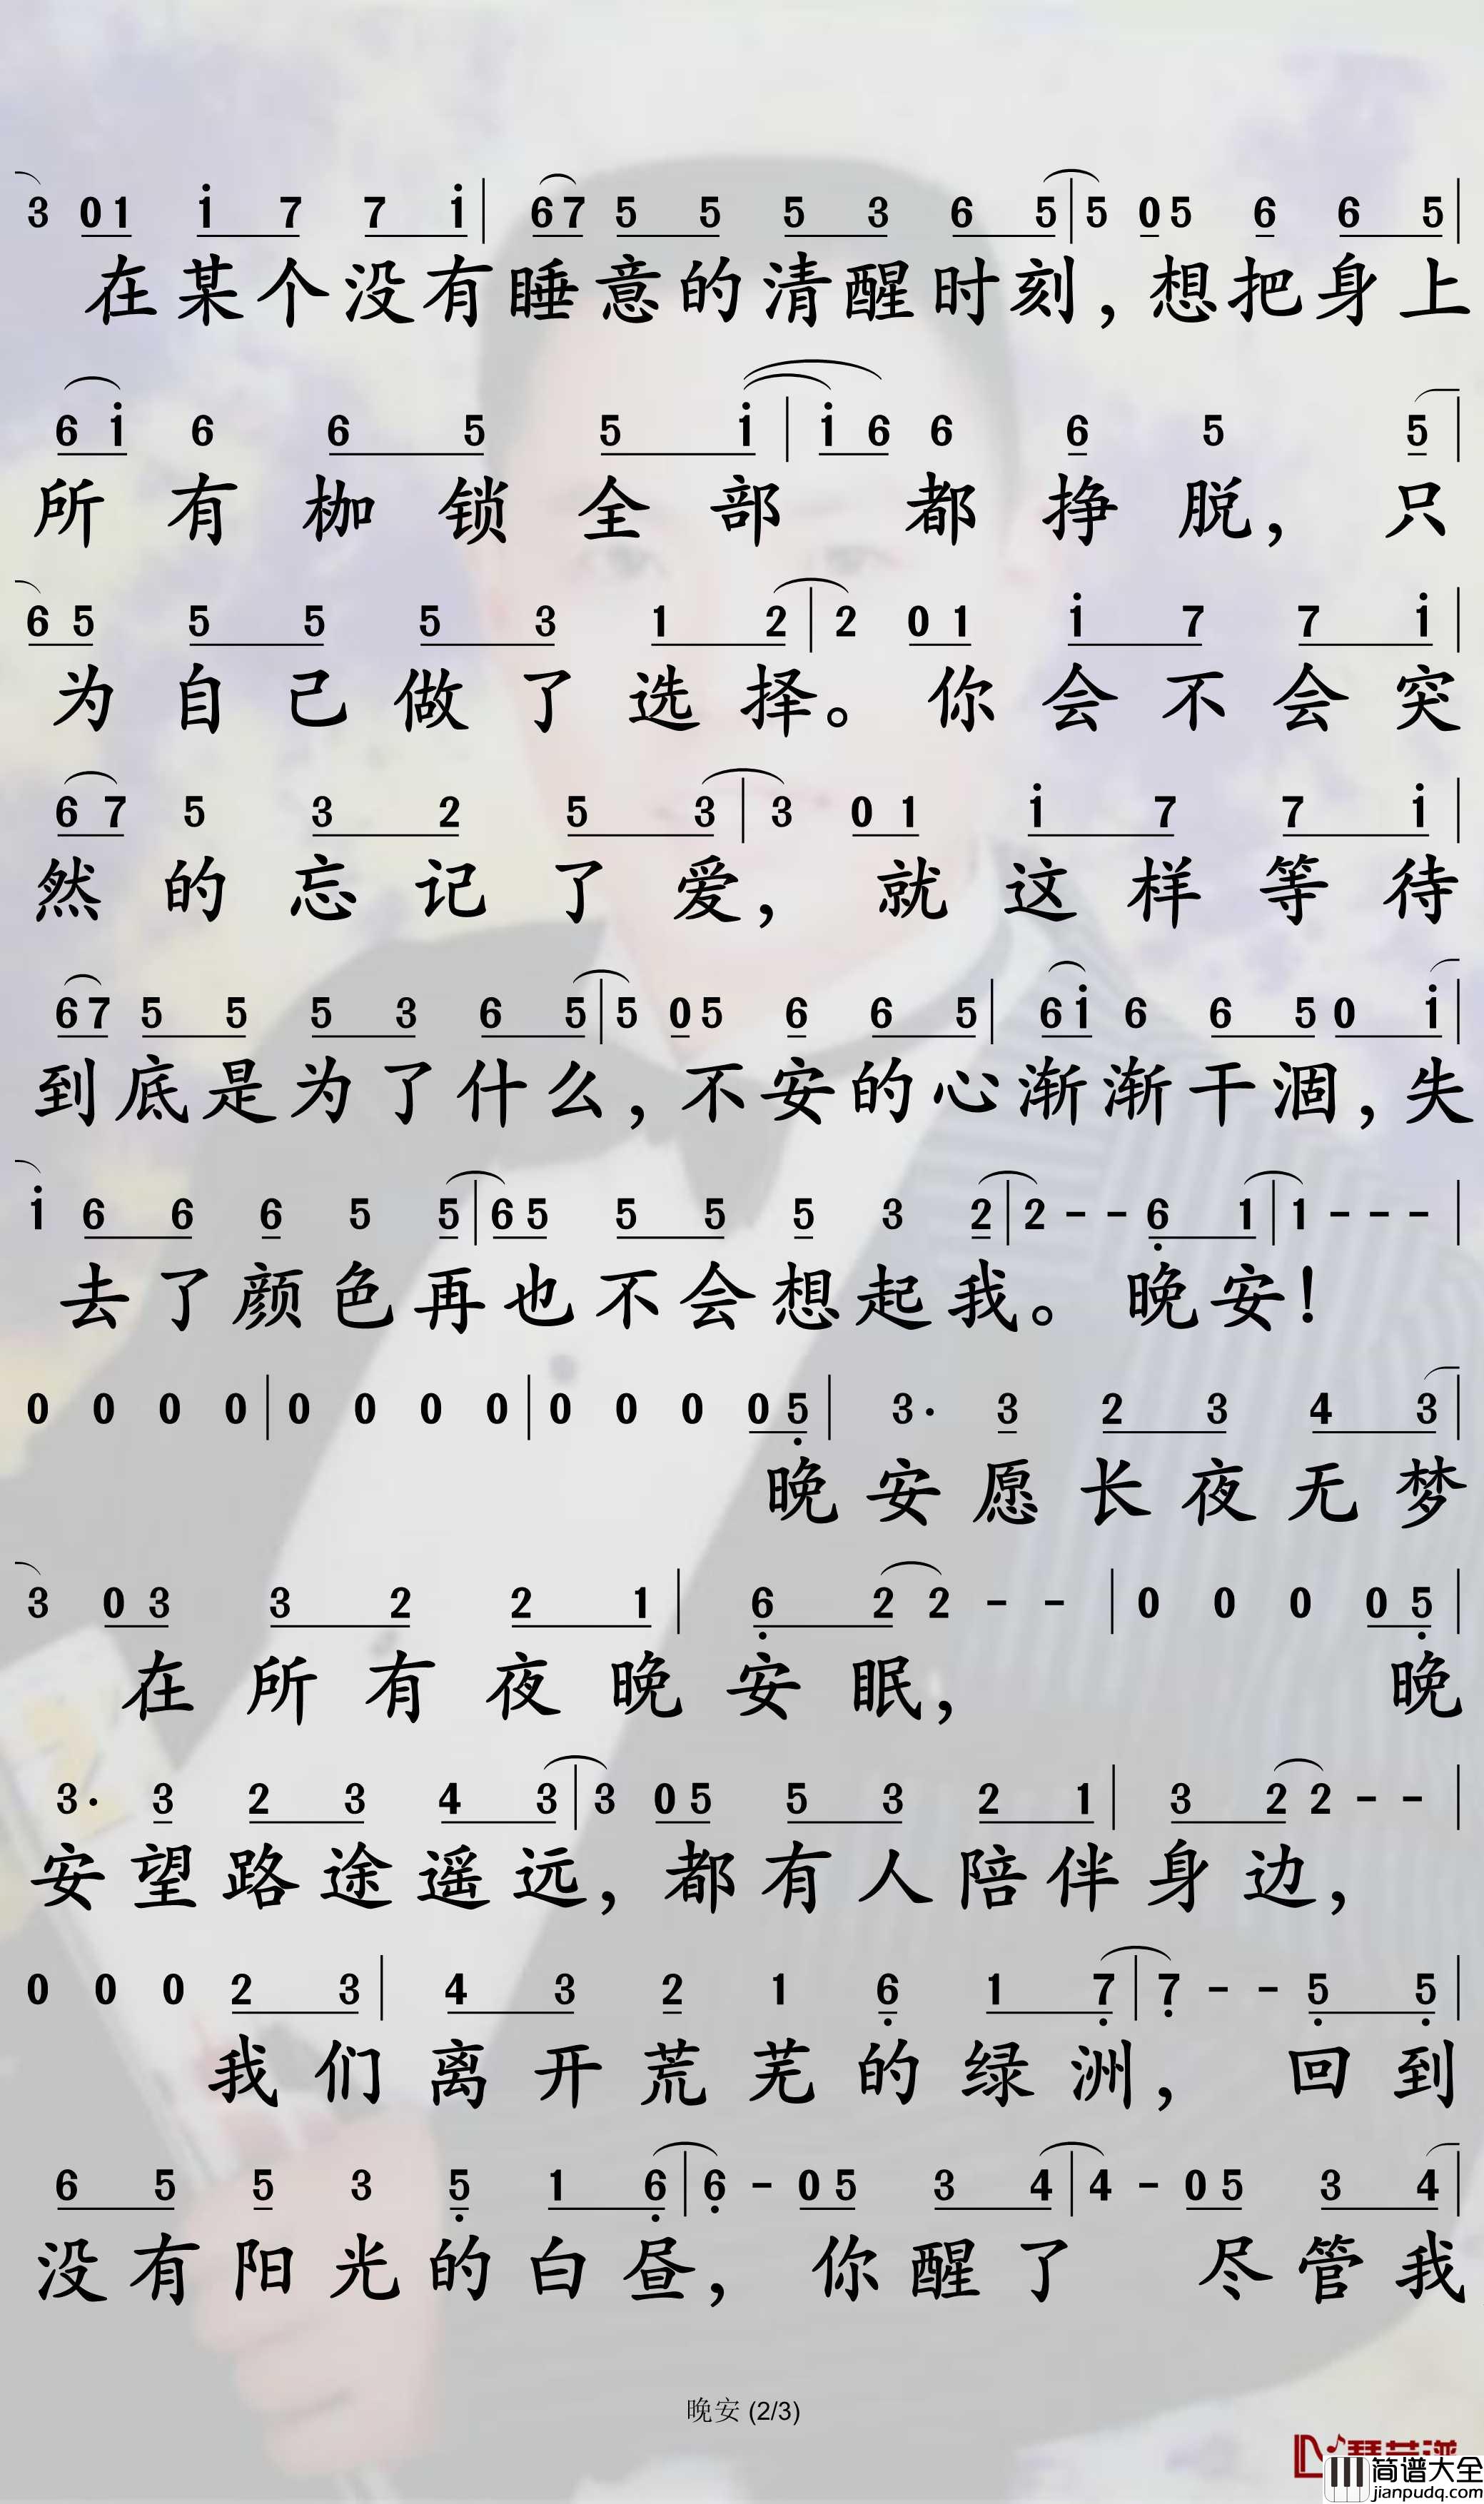 3 0 1 i 7 7 i | 6 7 5 5 5 3 6 5 | 5 0 5 6 6 5 |
在某个没有睡意的清醒时刻，想把身上
6 i 6 6 5 5 i | i 6 6 6 5 5 |
所有枷锁全部都挣脱，只
6 5 5 5 5 3 1 2 | 2 0 1 i 7 7 i |
为自己做了选择。你会不会突
6 7 5 3 2 5 3 | 3 0 1 i 7 7 i |
然的忘记了爱，就这样等待
6 7 5 5 5 3 6 5 | 5 0 5 6 6 5 | 6 i 6 6 5 0 i |
到底是为了什么，不安的心渐渐干涸，失
i 6 6 6 5 5 | 6 5 5 5 5 3 2 | 2 - - 6 1 | 1 - - - |
去了颜色再也不会想起我。晚安！
0 0 0 0 | 0 0 0 0 | 0 0 0 0 5 | 3· 3 2 3 4 3 |
晚安愿长夜无梦
3 0 3 3 2 2 1 | 6 2 2 - - | 0 0 0 0 5 |
在所有夜晚安眠，晚
3· 3 2 3 4 3 | 3 0 5 5 3 2 1 | 3 2 2 - - |
安望路途遥远，都有人陪伴身边，
0 0 0 2 3 | 4 3 2 1 6 1 7 | 7 - - 5 5 |
我们离开荒芜的绿洲，回到
6 5 5 3 5 1 6 | 6 - 0 5 3 4 | 4 - 0 5 3 4 |
没有阳光的白昼，你醒了 尽管我
晚安 (2/3)
简谱大全
jianpudq.com